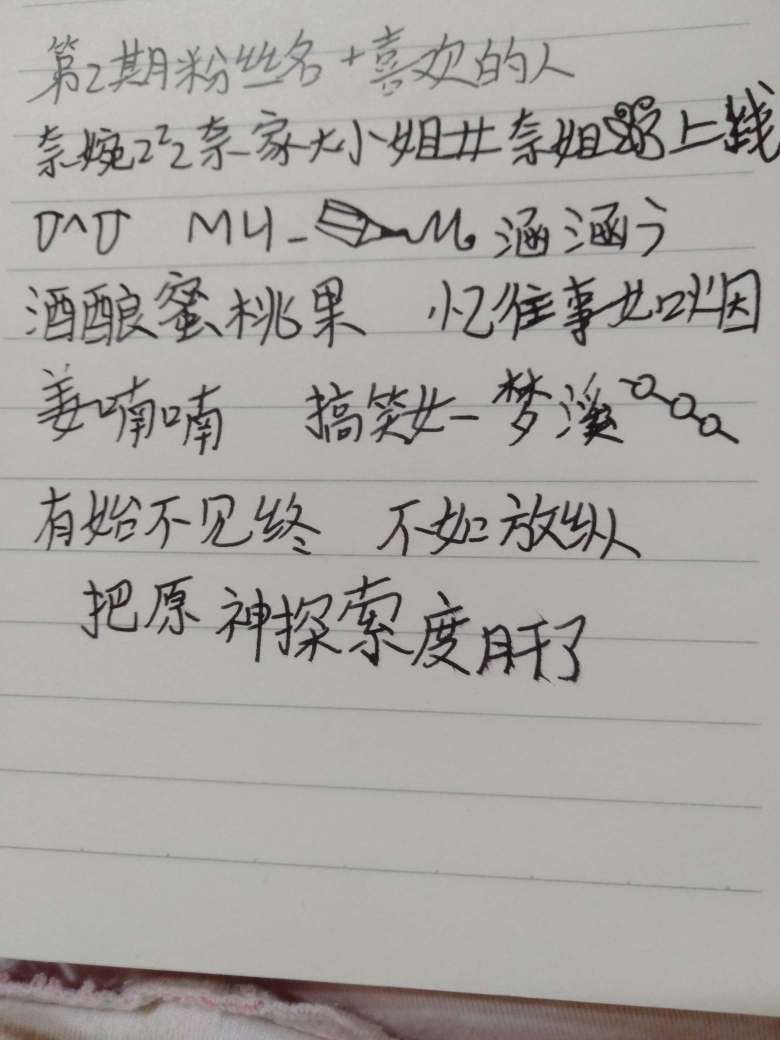 第2期粉丝名+喜欢的人
奈婉zzz奈家大小姐廿奈姐上线
ᑌ^ᑌ MU- 涵涵ㄋ
酒酿蜜桃果 忆往事如烟
姜喃喃 搞笑女-梦溪
有始不见终 不如放纵
把原神探索度肝了